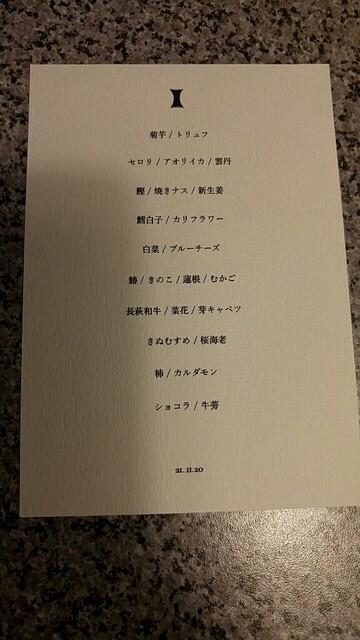 菊芋 / トリュフ
セロリ / アオリイカ / 雲丹
鰹 / 焼きナス / 新生姜
鱈白子 / カリフラワー
白菜 / ブルーチーズ
鰆 / きのこ / 蓮根 / むかご
長萩和牛 / 菜花 / 芽キャベツ
きぬむすめ / 桜海老
柿 / カルダモン
ショコラ / 牛蒡
21. 11.20